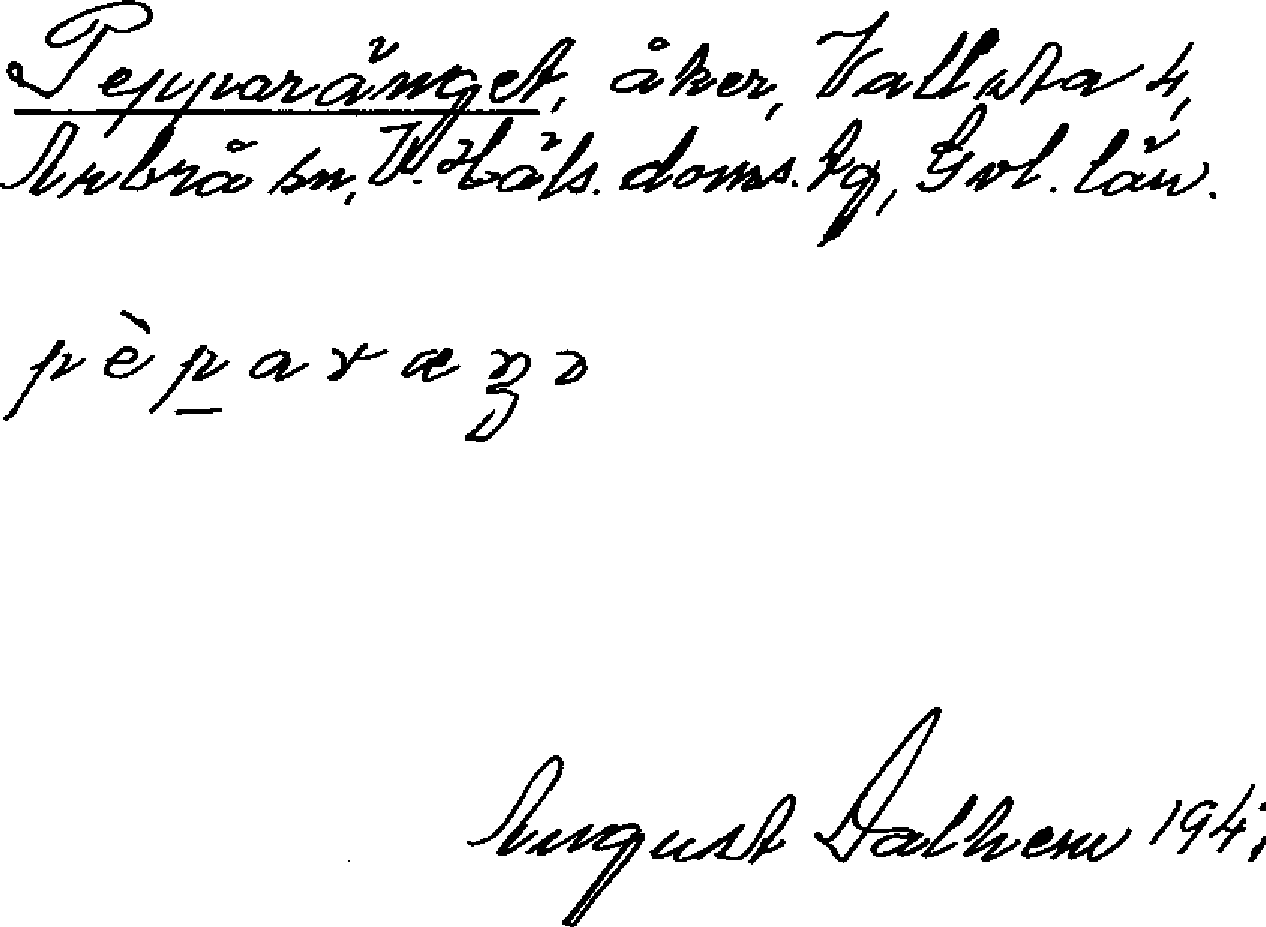 Pepparänget, åker, Vallsta 4,
Arbrå sn, V. Häls. doms. tg, Gvl. län.
pèp̲aræŋə
August Dalhem